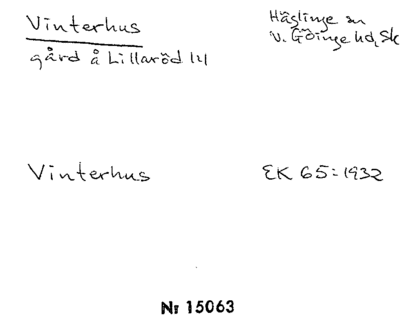 Vinterhus
gård å Lillaröd 1:1
Häglinge sn
V. Göinge hd, Sk
Vinterhus
EK 65:1932
Nr 15063